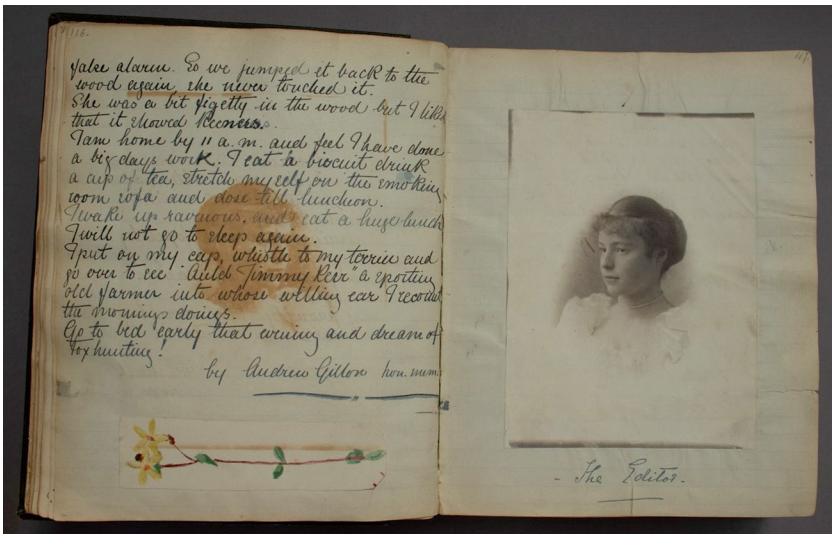 116.
false alarm. So we jumped it back to the
wood again, she never touched it.
She was a bit figetty in the wood but I like
that it showed keeness.
I am home by 11 a.m. and feel I have done
a big days work. I eat a biscuit drink
a cup of tea, stretch myself on the smoking
room sofa and dose till luncheon.
I wake up ravenous, and eat a huge lunch
I will not go to sleep again.
I put on my cap, whistle to my terrier and
go over to see "Auld Jimmy Keir" a sporting
old farmer into whose willing ear I recount
the mornings doings.
Go to bed early that evening and dream of
foxhunting.
by Andrew Gillon hon. mem.
117.
- The Editor. -